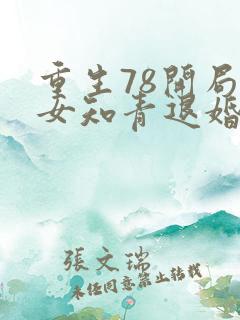 重生78開局
女知青退婚
張文瑞
未任同意禁止转载